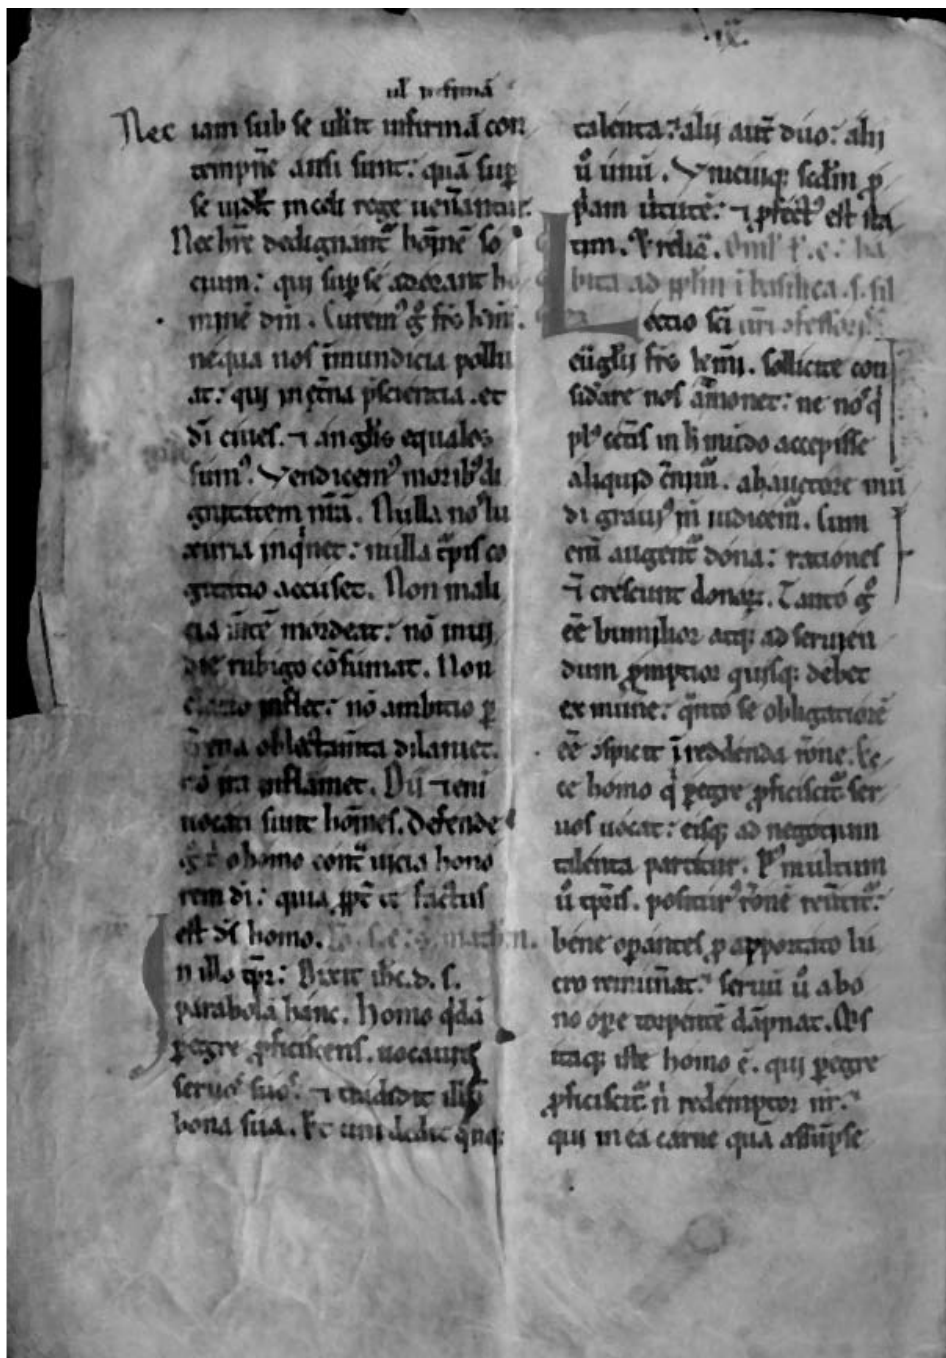 .ix.
ul infirmā
Nec iam sub se uilit̄ infirmā con
tempn̄e ausi sunt: quā sup̄
se uid̄t in celi rege uen̄antur.
Nec hr̄e dedignant᷑ hoīnē so
cium: qui sup̄ se adorant ho
minē dm̄. Curem᷒ g̊ fr̄s kmi.
nequa nos īmundicia pollu
at: qui in et̄na p̄sciencia. et
di ciues. ⁊ angl̄is equales
sum᷒. Vendicem᷒ morib᷒ di
gnitatem nr̄ā. Nulla no᷒ lu
xuria inqⁱnet: nulla t᷑pis co
gitatio accuset. Non mali
cia m̄tē mordeat: nō inui
die rubigo cōsumat. Non
elatio inflet: nō ambitio p̲
t̄rena oblectam̄ta dilaniet.
nō ira inflāmet. Dii ⁊eni
uocati sunt hoīnes. Defende
g̊ tⁱ o homo cont᷑ uicia hono
rem di: quia pp̄t te factus
est ds̄ homo. s. e. s. mathm.
n illo tp̄r: Dixit ihc. d. s.
parabolā hanc. Homo qⁱdā
p̲egre p̲ficiscens. uocauit
seruo᷒ suo᷒. ⁊ tradidit illis
bona sua. Et uni dedit qⁱnq;
talenta: alii aut̄ duo: alii
ū unū. Vnicuiq; sedm̄ p̲
p̄am uⁱtutē. ⁊ p̲fect᷒ est sta
tim. ⁊ reliq̄. Oml᷒ e. ha
bita ad pplm ī basilica. s. sil
Lectio sci
eūglii fr̄s kmi. sollicite con
sid̄are nos am̄onet: ne no᷒ qⁱ
pl᷒ cet̄is in h̄ mūdo accepisse
aliquid c̄nim᷑. ab auctore mū
di graui᷒ īn iudicem᷑. Cum
em̄ augent᷑ dona: rationes
⁊ crescunt donoꝝ. Tanto g̊
eē̄ humilior atq; ad seruien
dum p̲mptior quisq; debet
ex mune: qⁿto se obligatiorē
eē̄ ɔspicit ī reddenda r̄one. Ec
ce homo qⁱ p̲egre p̲ficiscit᷑ ser
uos uocat: eisq; ad negotium
talenta partitur. P᷒ multum
ū tp̄is. positur᷒ r̄onē reūtit᷑:
bene op̲antes p̲ apportato lu
cro remun̄at: serui ū a bo
no op̲e torpentē dāpnat. Q̄s
itaq; iste homo ē̄. qui p̲egre
p̲ficiscit᷑ nⁱ redemptor nr̄:
qui in ea carne quā assūpse